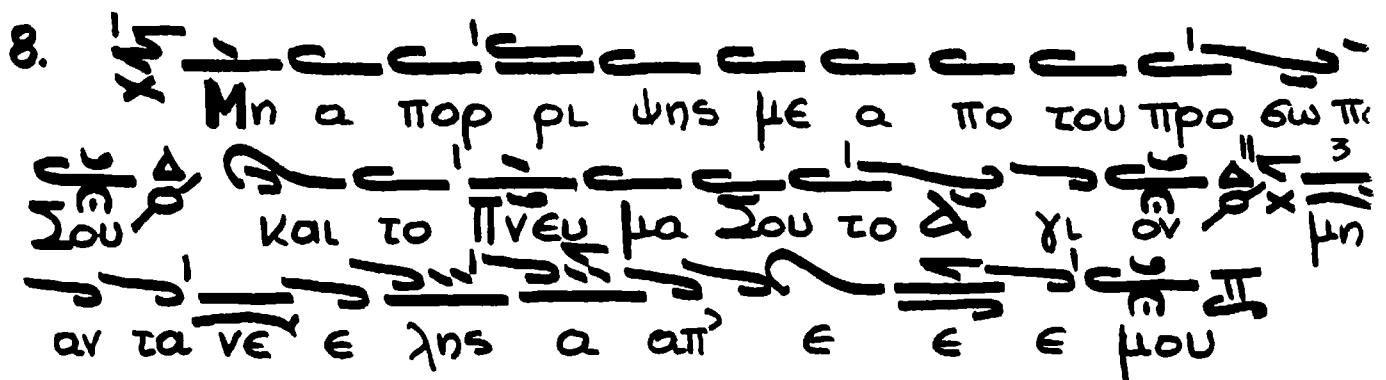 8. Μη α πορ ρι ψης με α πο του προ σω π
Σου Δ και το Πνευ μα Σου το Α γι ον Δ μη
αν τα νε ε λης α απ' ε ε ε μου